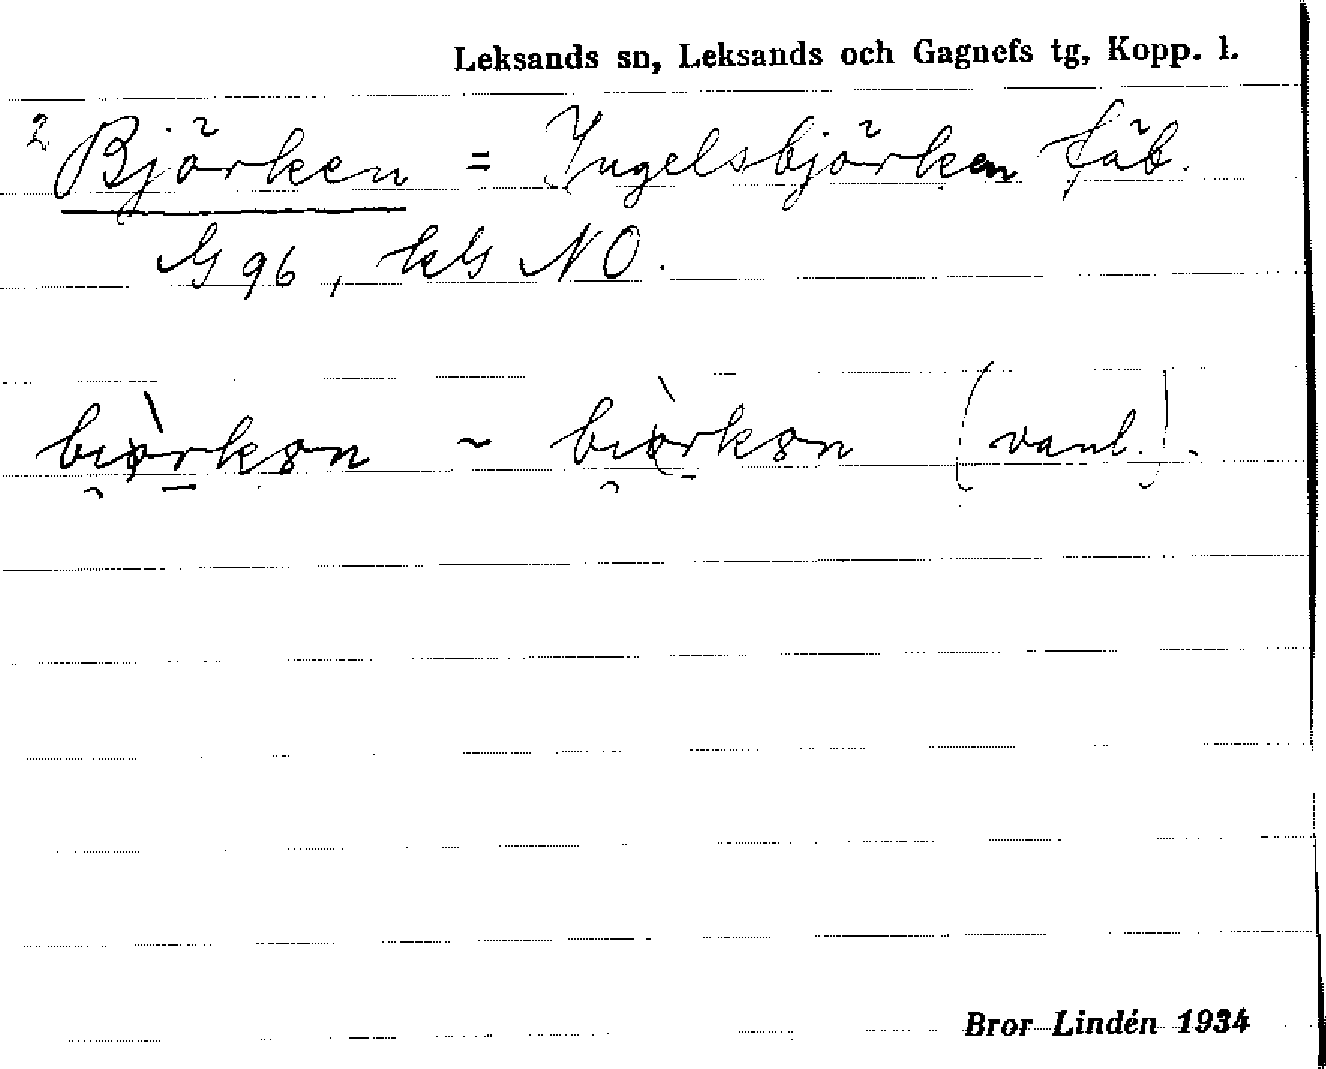 Leksands sn, Leksands och Gagnefs tg, Kopp. l.
2 Björken = Ingelsbjörken fäb.
G 96, kbl NO.
bìörkən ~ bìörkən (vanl.).
Bror Lindén 1934